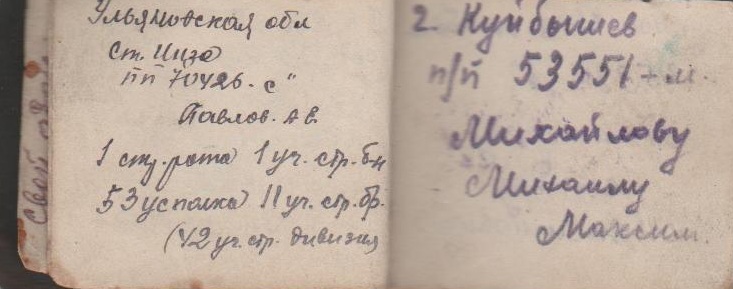 Ульяновская обл
ст. Инза
пп 70426 "с"
Павлов. А В.
1 стр. рота 1 уч. стр. б-н
53 усполка 11 уч. стр. бр.
(42 уч. стр. дивизия
г. Куйбышев
п/п 53551-м.
Михайлову
Михаилу
Максим.
свой